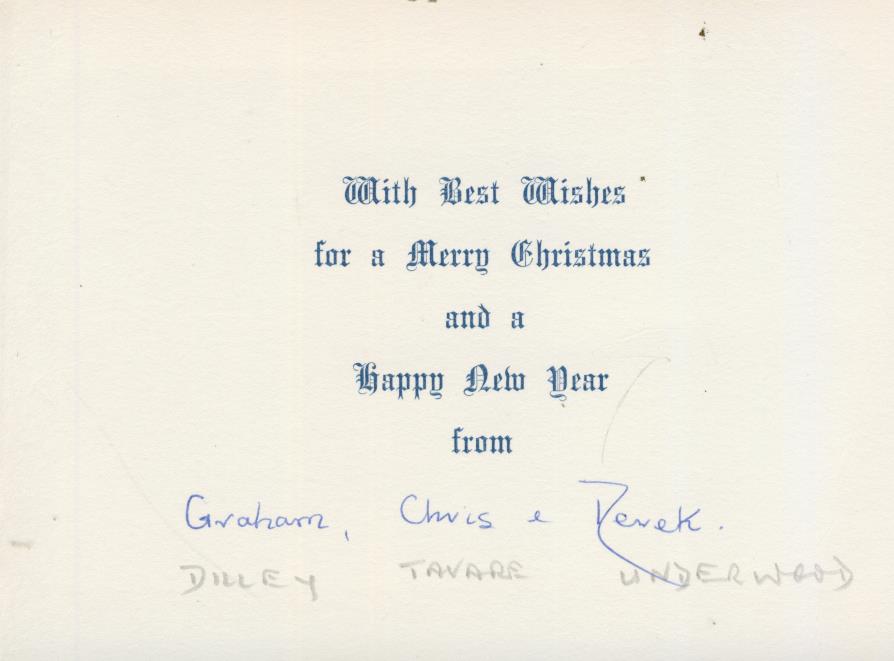 With Best Wishes
for a Merry Christmas
and a
Happy New Year
from
Graham, Chris & Derek.
DILLEY TAVARE UNDERWOOD